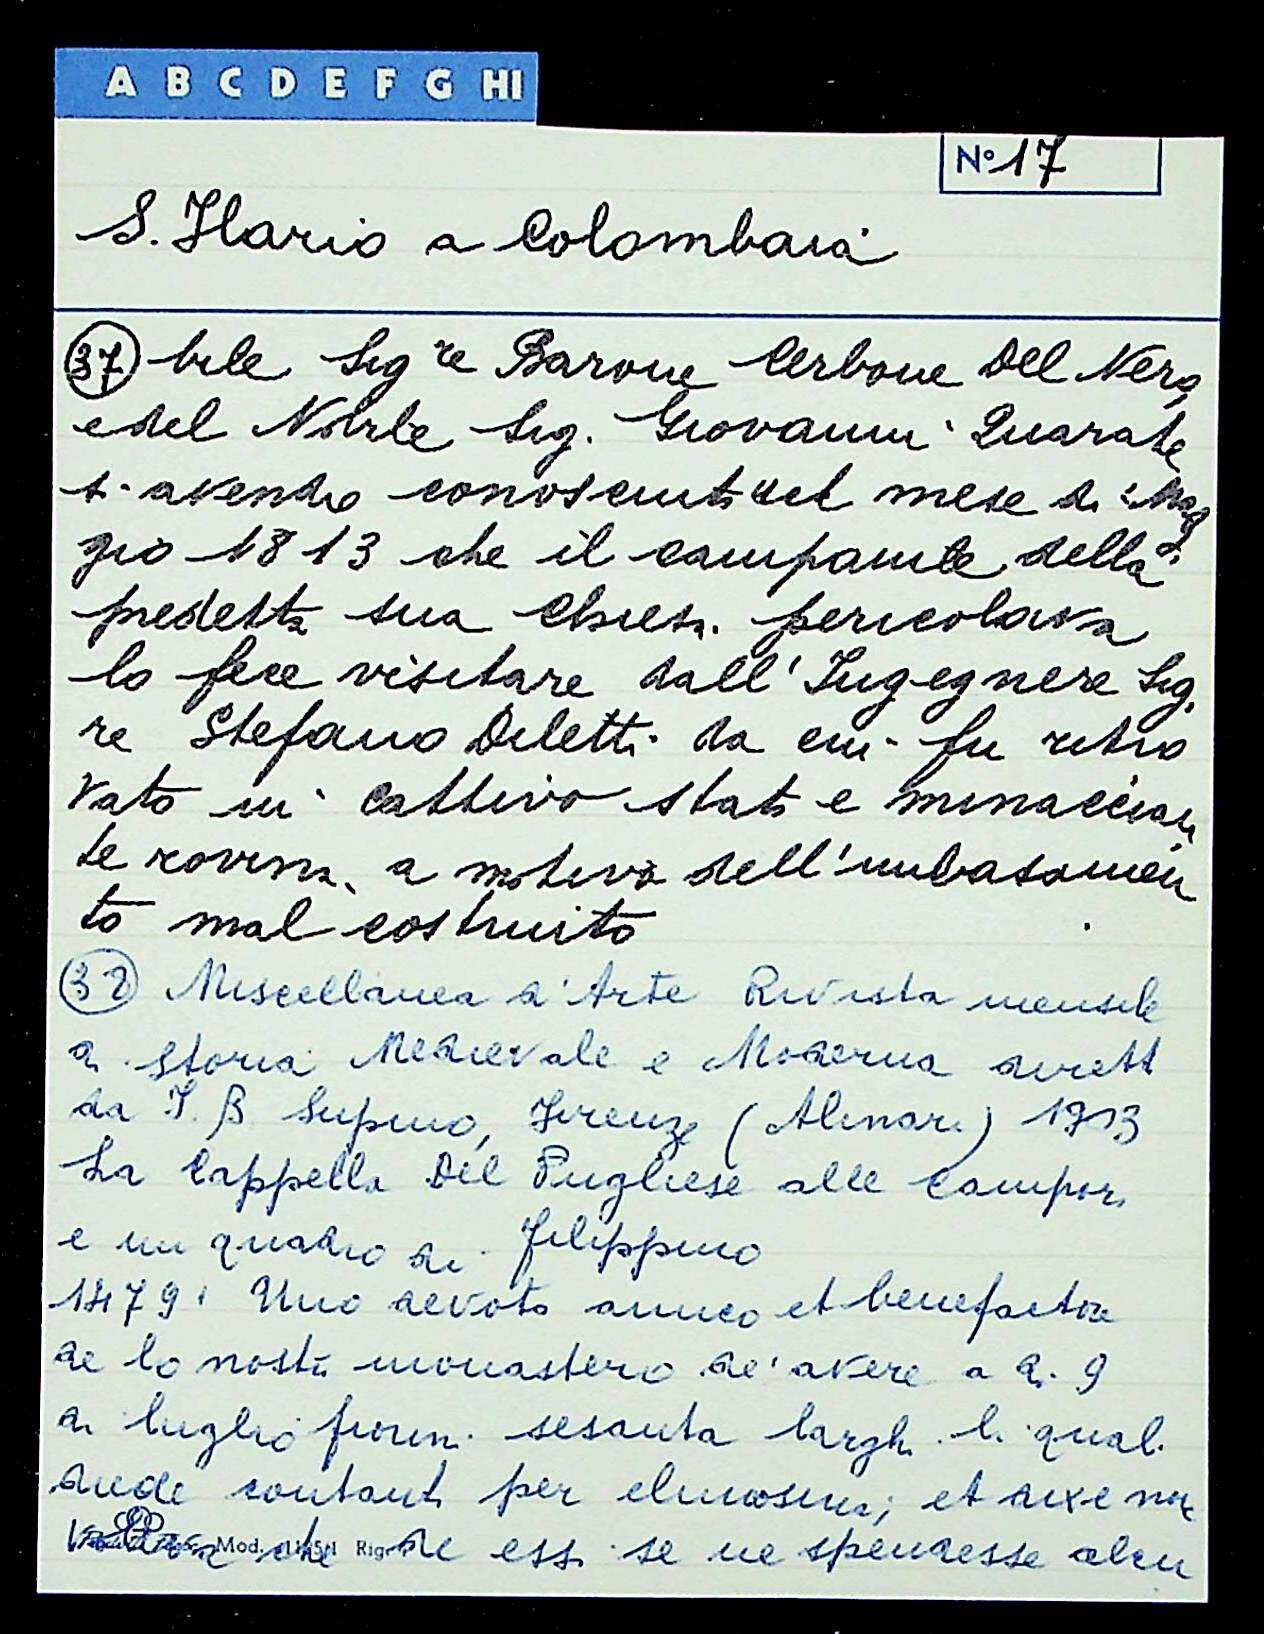 A B C D E F G HI
N° 17
S. Ilario a Colombaia
37 bile Sig re Barone Cerbone Del Nero
e del Nobile Sig. Giovanni Quarate
si avendo conosciuto del mese di Mag
gio 1813 che il campanile della
predetta sua Chiesa pericolava
lo fece visitare dall'Ingegnere Sig.
re Stefano Diletti da cui fu ritro
vato in cattivo stato e minaccian
te rovina, a motivo dell'imbasamen
to mal costruito
38 Miscellanea d'Arte Rivista mensile
di storia Medievale e Moderna dirett
da I. B. Supino, Firenze (Alinari) 1903
La Cappella Del Pugliese alle Campora
e un quadro di Filippino
1479: Uno devoto amico et benefactore
de lo nostro monastero de' avere a di 9
di luglio fiorini sesanta larghi li quali
diede contanti per elimosina; et dixe non
voleva che de essi se ne spendesse alcu
Mod. Rig.